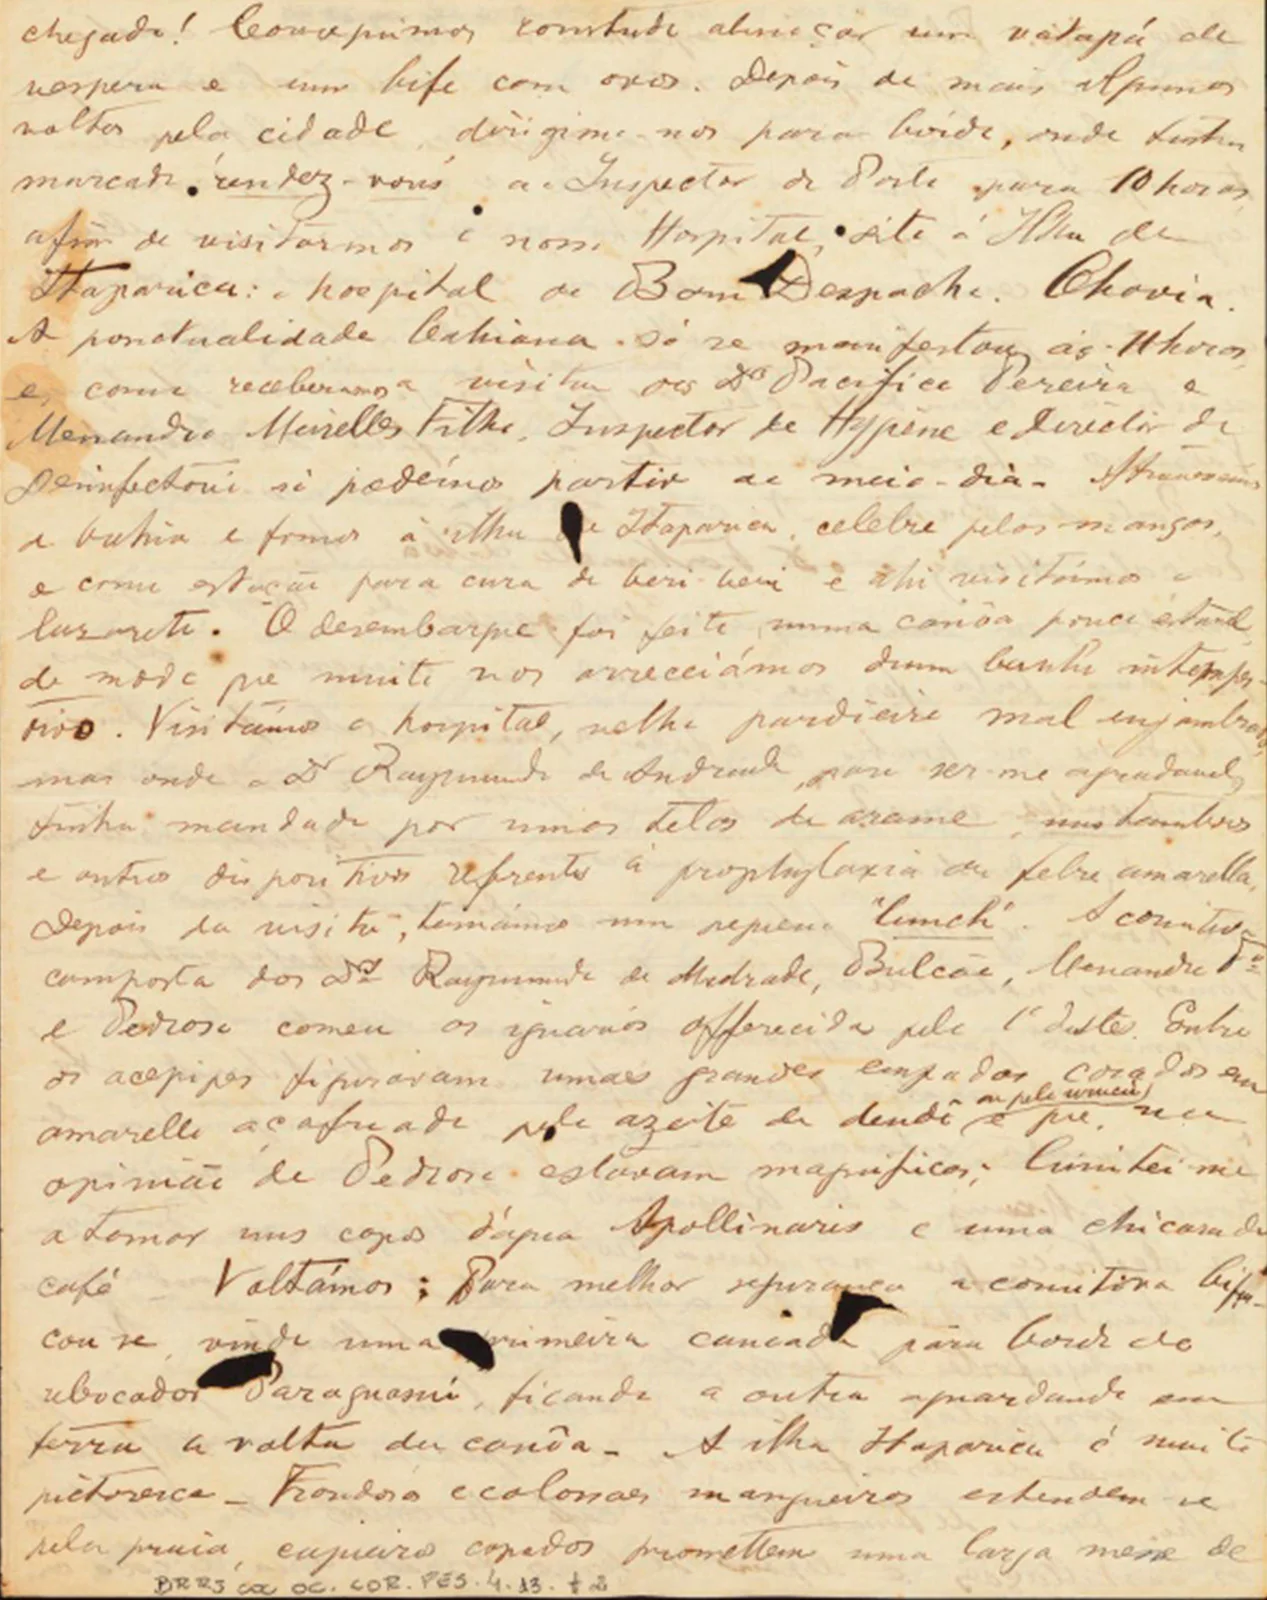 chegada! Conseguimos comtudo almoçar um vatapá de
vespera e um bife com ovos. Depois de mais algumas
voltas pela cidade, dirigimo-nos para bordo, onde tinha
marcado rendez-vous ao Inspector do Porto para 10 horas,
afim de visitarmos o nosso Hospital, sito á Ilha de
Itaparica: o hospital de Bom Despacho. Chovia.
A ponctualidade bahiana só se manifestou ás 11 horas,
e, como receberamos a visita dos Drs Pacifico Pereira e
Menandro Meirelles Filho, Inspector de Hygiene e director do
Desinfectorio só podémos partir ao meio-dia. Atravessámos
a bahia e fomos á ilha de Itaparica, celebre pelas mangas,
e como estação para cura de beri-beri e ahi visitámos o
lazareto. O desembarque foi feito numa canôa pouco estavel,
de modo que muito nos arreceiámos dum banho intempes-
tivo. Visitámos o hospital, velho pardieiro mal enjambrado,
mas onde o Dr Raymundo de Andrade, para ser-me agradavel,
tinha mandado por umas telas de arame, uns tambores
e outros dispositivos referentes á prophylaxia da febre amarella.
Depois da visita, tomámos um pequeno "lunch". A comitiva
composta dos Drs Raymundo de Andrade, Bulcão, Menandro Fo
e Pedroso comeu as iguarias offerecidas pelo 1º destes. Entre
os acepipes figuravam umas grandes empadas coradas em
amarello açafroado pelo azeite de dendê (ou pelo urucú) e que, na
opinião do Pedroso estavam magnificas; limitei-me
a tomar uns copos d'agua Apollinaris e uma chicara de
café. Voltámos; Para melhor segurança a comitiva bifur-
cou-se, vindo uma primeira canoada para bordo do
rebocador Paraguassú, ficando a outra aguardando em
terra a volta da canôa. A ilha Itaparica é muito
pictoresca. Frondosas e colossaes mangueiras estendem-se
pela praia, cajueiros copados promettem uma larga messe de
BR RJ COC OC. COR. PES. 4. 13. f 2